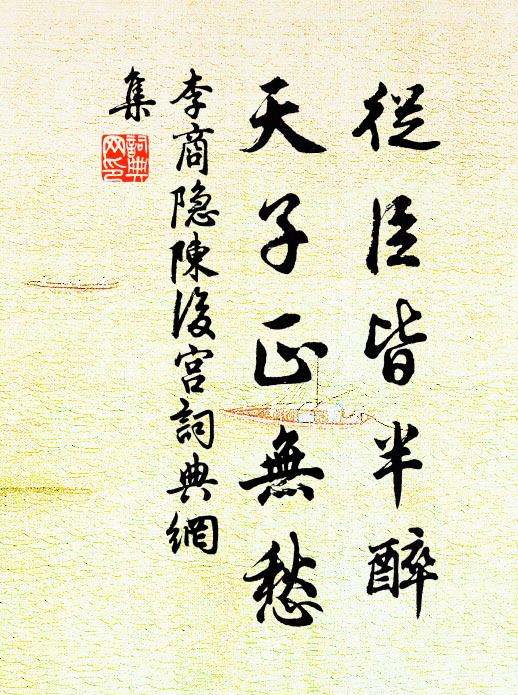 從臣皆半醉
天子正無愁
李商隐陳後宫詞典網
集
詞典
网印